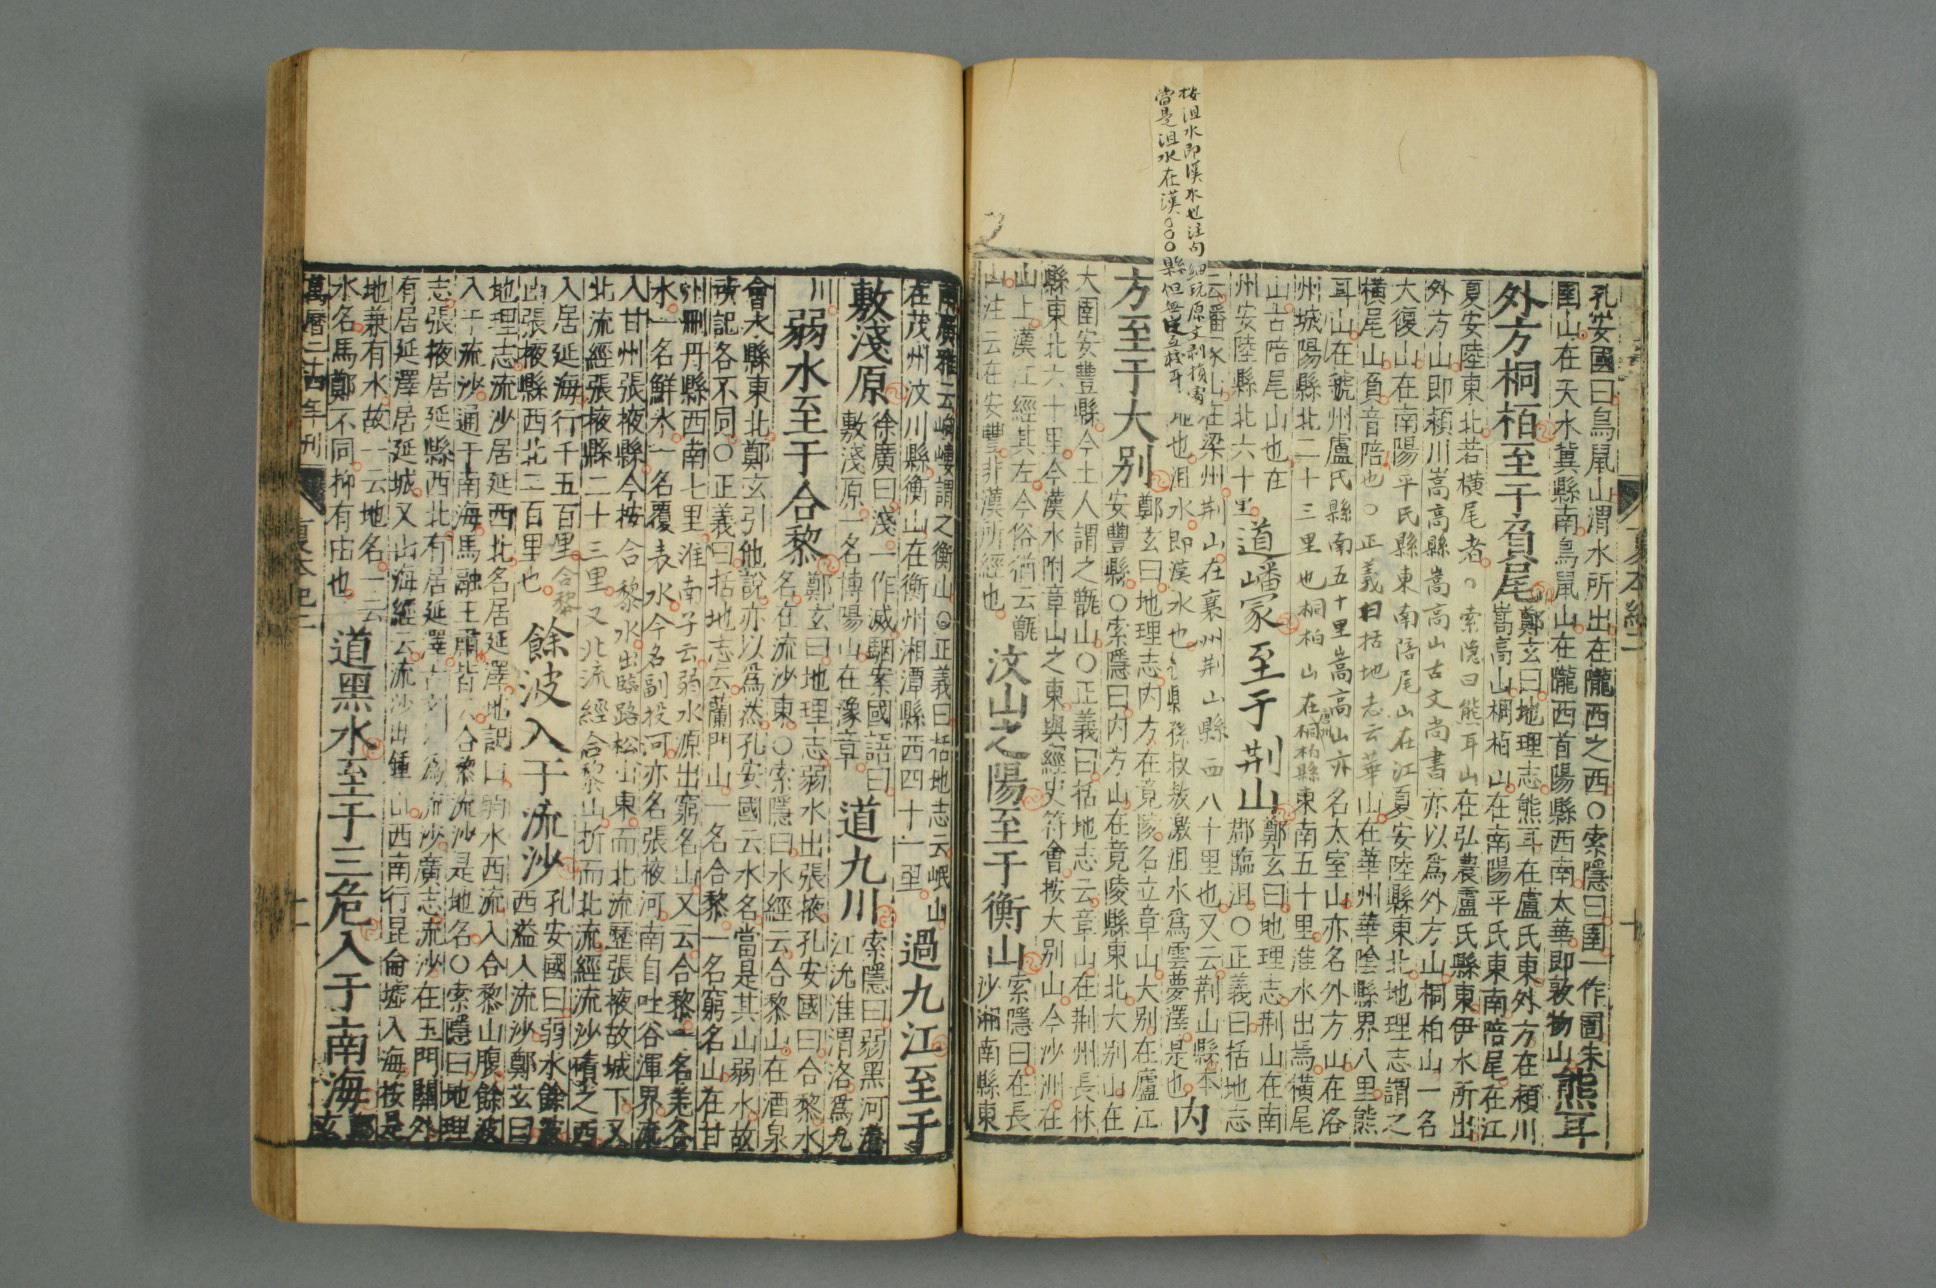 按沮水即漢水也注句細玩原文剥損處
當是沮水在漢○○○縣但無
夏本紀二
孔安國曰鳥鼠山渭水所出在隴西之西○索隱曰圉一作圄朱
圉山在天水冀縣南鳥鼠山在隴西首陽縣西南太華即敦物山
熊耳
外方桐栢至于負尾
鄭玄曰地理志熊耳在盧氏東外方在潁川
嵩高山桐栢山在南陽平氏東南陪尾在江
夏安陸東北若橫尾者○索隱曰熊耳山在弘農盧氏縣東伊水所出
外方山即潁川嵩高縣嵩高山古文尚書亦以爲外方山桐柏山一名
大復山在南陽平氏縣東南陪尾山在江夏安陸縣東北地理志謂之
橫尾山負音陪也○正義曰括地志云華山在華州華陰縣界八里熊
耳山在虢州盧氏縣南五十里嵩高山亦名太室山亦名外方山在洛
州城陽縣北二十三里也桐柏山在唐州桐柏縣東南五十里淮水出焉橫尾
山古陪尾山也在
州安陸縣北六十里
道嶓冢至于荆山
鄭玄曰地理志荆山在南
郡臨沮○正義曰括地志
山在梁州荆山在襄州荆山縣西八十里也又云荆山縣本
地也沮水即漢水也
縣孫叔敖激沮水爲雲夢澤是也
内
方至于大别
鄭玄曰地理志内方在竟陵名立章山大别在廬江
安豐縣○索隱曰内方山在竟陵縣東北大别山在
大圉安豐縣今土人謂之甑山○正義曰括地志云章山在荆州長林
縣東北六十里今漢水附章山之東與經史符會按大别山今沙洲在
山上漢江經其左今俗猶云甑
山注云在安豐非漢所經也
汶山之陽至于衡山
索隱曰在長
沙湘南縣東
南廣雅云岣嶁謂之衡山○正義曰括地志云岷山
在茂州汶川縣衡山在衡州湘潭縣西四十一里
過九江至于
敷淺原
徐廣曰淺一作滅駰案國語曰
敷淺原一名博陽山在豫章
道九川
索隱曰弱黑河濟
江沇淮渭洛爲九
川
弱水至于合黎
鄭玄曰地理志弱水出張掖孔安國曰合黎水
名在流沙東○索隱曰水經云合黎山在酒泉
會水縣東北鄭玄引他說亦以爲然孔安國云水名當是其山弱水故
所記各不同○正義曰括地志云蘭門山一名合黎一名窮名山在甘
州刪丹縣西南七里淮南子云弱水源出窮名山又云合黎一名羌谷
水一名鮮水一名覆表水今名副投河亦名張掖河南自吐谷渾界流
入甘州張掖縣今按合黎水出臨路松山東而北流歷張掖故城下又
北流經張掖縣二十三里又北流經合黎山折而北流經流沙磧之西
入居延海行千五百里合黎
山張掖縣西北二百里也
餘波入于流沙
孔安國曰弱水餘波
西溢入流沙鄭玄曰
地理志流沙居延西北名居延澤地記曰弱水西流入合黎山腹餘波
入于流沙通于南海馬融王肅皆云合黎流沙是地名○索隱曰地理
志張掖居延縣西北有居延澤古文以爲流沙廣志流沙在玉門關外
有居延澤居延城又山海經云流沙出鍾山西南行昆侖墟入海按是
地兼有水故一云地名一云
水名馬鄭不同抑有由也
道黑水至于三危入于南海
萬曆二十四年刊
夏本紀二
十一